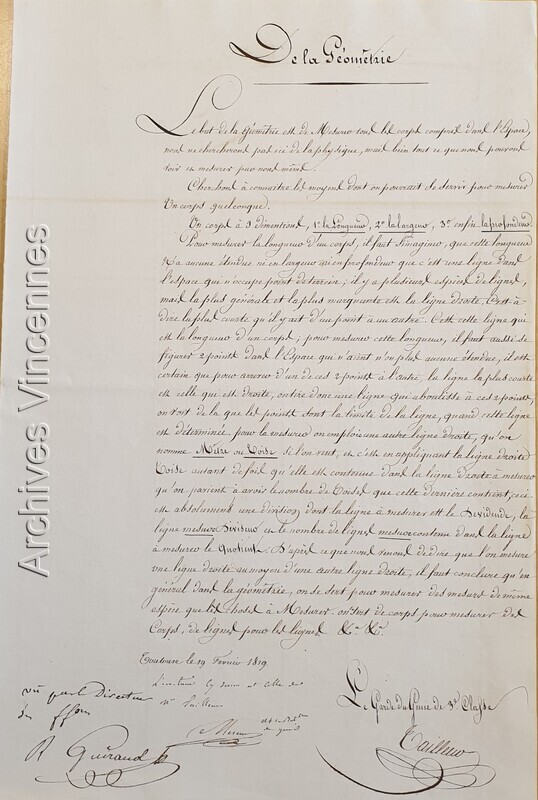 De la Géométrie
Le but de la géométrie est de Mesurer tous les corps compris dans l'Espace,
nous ne chercherons pas ici de la physique, mais bien tout ce que nous pouvons
voir et mesurer par nous même.
Cherchons à connaitre les moyens dont on pourrait se servir pour mesurer
Un corps quelconque.
Un corps à 3 dimentions, 1º la Longueur, 2º la largeur, 3º enfin la profondeur.
Pour mesurer la longueur d'un corps, il faut s'imaginer, que cette longueur
n'a aucune étendue ni en largeur ni en profondeur que c'est une ligne dans
l'espace qui n'occupe point de terrein; il y a plusieurs espèces de lignes,
mais la plus générale et la plus marquante est la ligne droite, C'est-à-
dire la plus courte qu'il y ait d'un point à un autre. C'est cette ligne qui
est la longueur d'un corps, pour mesurer cette longueur, il faut aussi se
figurer 2 points dans l'Espace qui n'aient n'on plus aucune étendue, il est
certain que pour arriver d'un de ces 2 points à l'autre, la ligne la plus courte
est celle qui est droite, ontire donc une ligne qui aboutisse à ces 2 points,
on sort de la que les points sont la limite de la ligne, quand cette ligne
est déterminée pour la mesurer on emploie une autre ligne droite, qu'on
nomme Mètre ou Toise si l'on veut, et c'est en appliquant la ligne droite
Toise autant de fois qu'elle est contenue dans la ligne droite à mesurer
qu'on parvient à avoir le nombre de Toises que cette dernière contient, ceci
est absolument une division dont la ligne à mesurer est le Dividende, la
ligne mesure Diviseur et le nombre de lignes mesure contenue dans la ligne
à mesurer le Quotient. D'après ce que nous venons de dire que l'on mesure
une ligne droite au moyen d'une autre ligne droite, il faut conclure qu'en
général dans la géométrie, on se sert pour mesurer des mesures de même
espèce que les choses à Mesurer. on sert de corps pour mesurer des
Corps, de lignes pour les lignes &ª &ª.
Toulouse le 19 Fevrier 1819
L'écriture cy dessus est celle de
Mr Tailleur
Le Garde du Génie de 3e Classe
Tailleur
vu par le Directeur
R Guiraud
Archives Vincennes